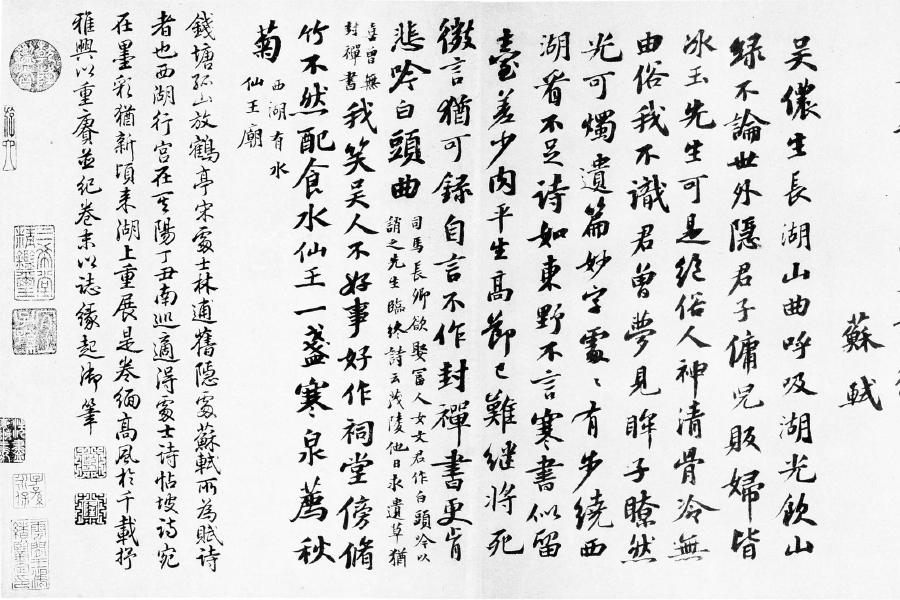 蘇軾
吴儂生長湖山曲呼吸湖光飲山
緑不論世外隱君子傭兒販婦皆
冰玉先生可是絕俗人神清骨冷無
由俗我不識君曾夢見眸子瞭然
光可燭遺篇妙字處〻有步繞西
湖看不足詩如東野不言寒書似留
臺差少肉平生高節已難継將死
微言猶可録自言不作封禪書更肯
悲吟白頭曲
司馬長卿欲娶富人女文君作白頭吟以
誚之先生臨終詩云茂陵他日求遺草猶
喜曾無
封禪書
我笑吴人不好事好作祠堂傍脩
竹不然配食水仙王一盞寒泉薦秋
菊
西湖有水
仙王廟
錢塘孤山放鶴亭宋處士林逋舊隱處蘇軾所為賦詩
者也西湖行宮在其陽丁丑南巡適得處士詩帖坡詩宛
在墨彩猶新頃来湖上重展是卷緬高風於千載抒
雅興以重賡並紀卷末以誌緣起御筆
三希堂
精鑑璽